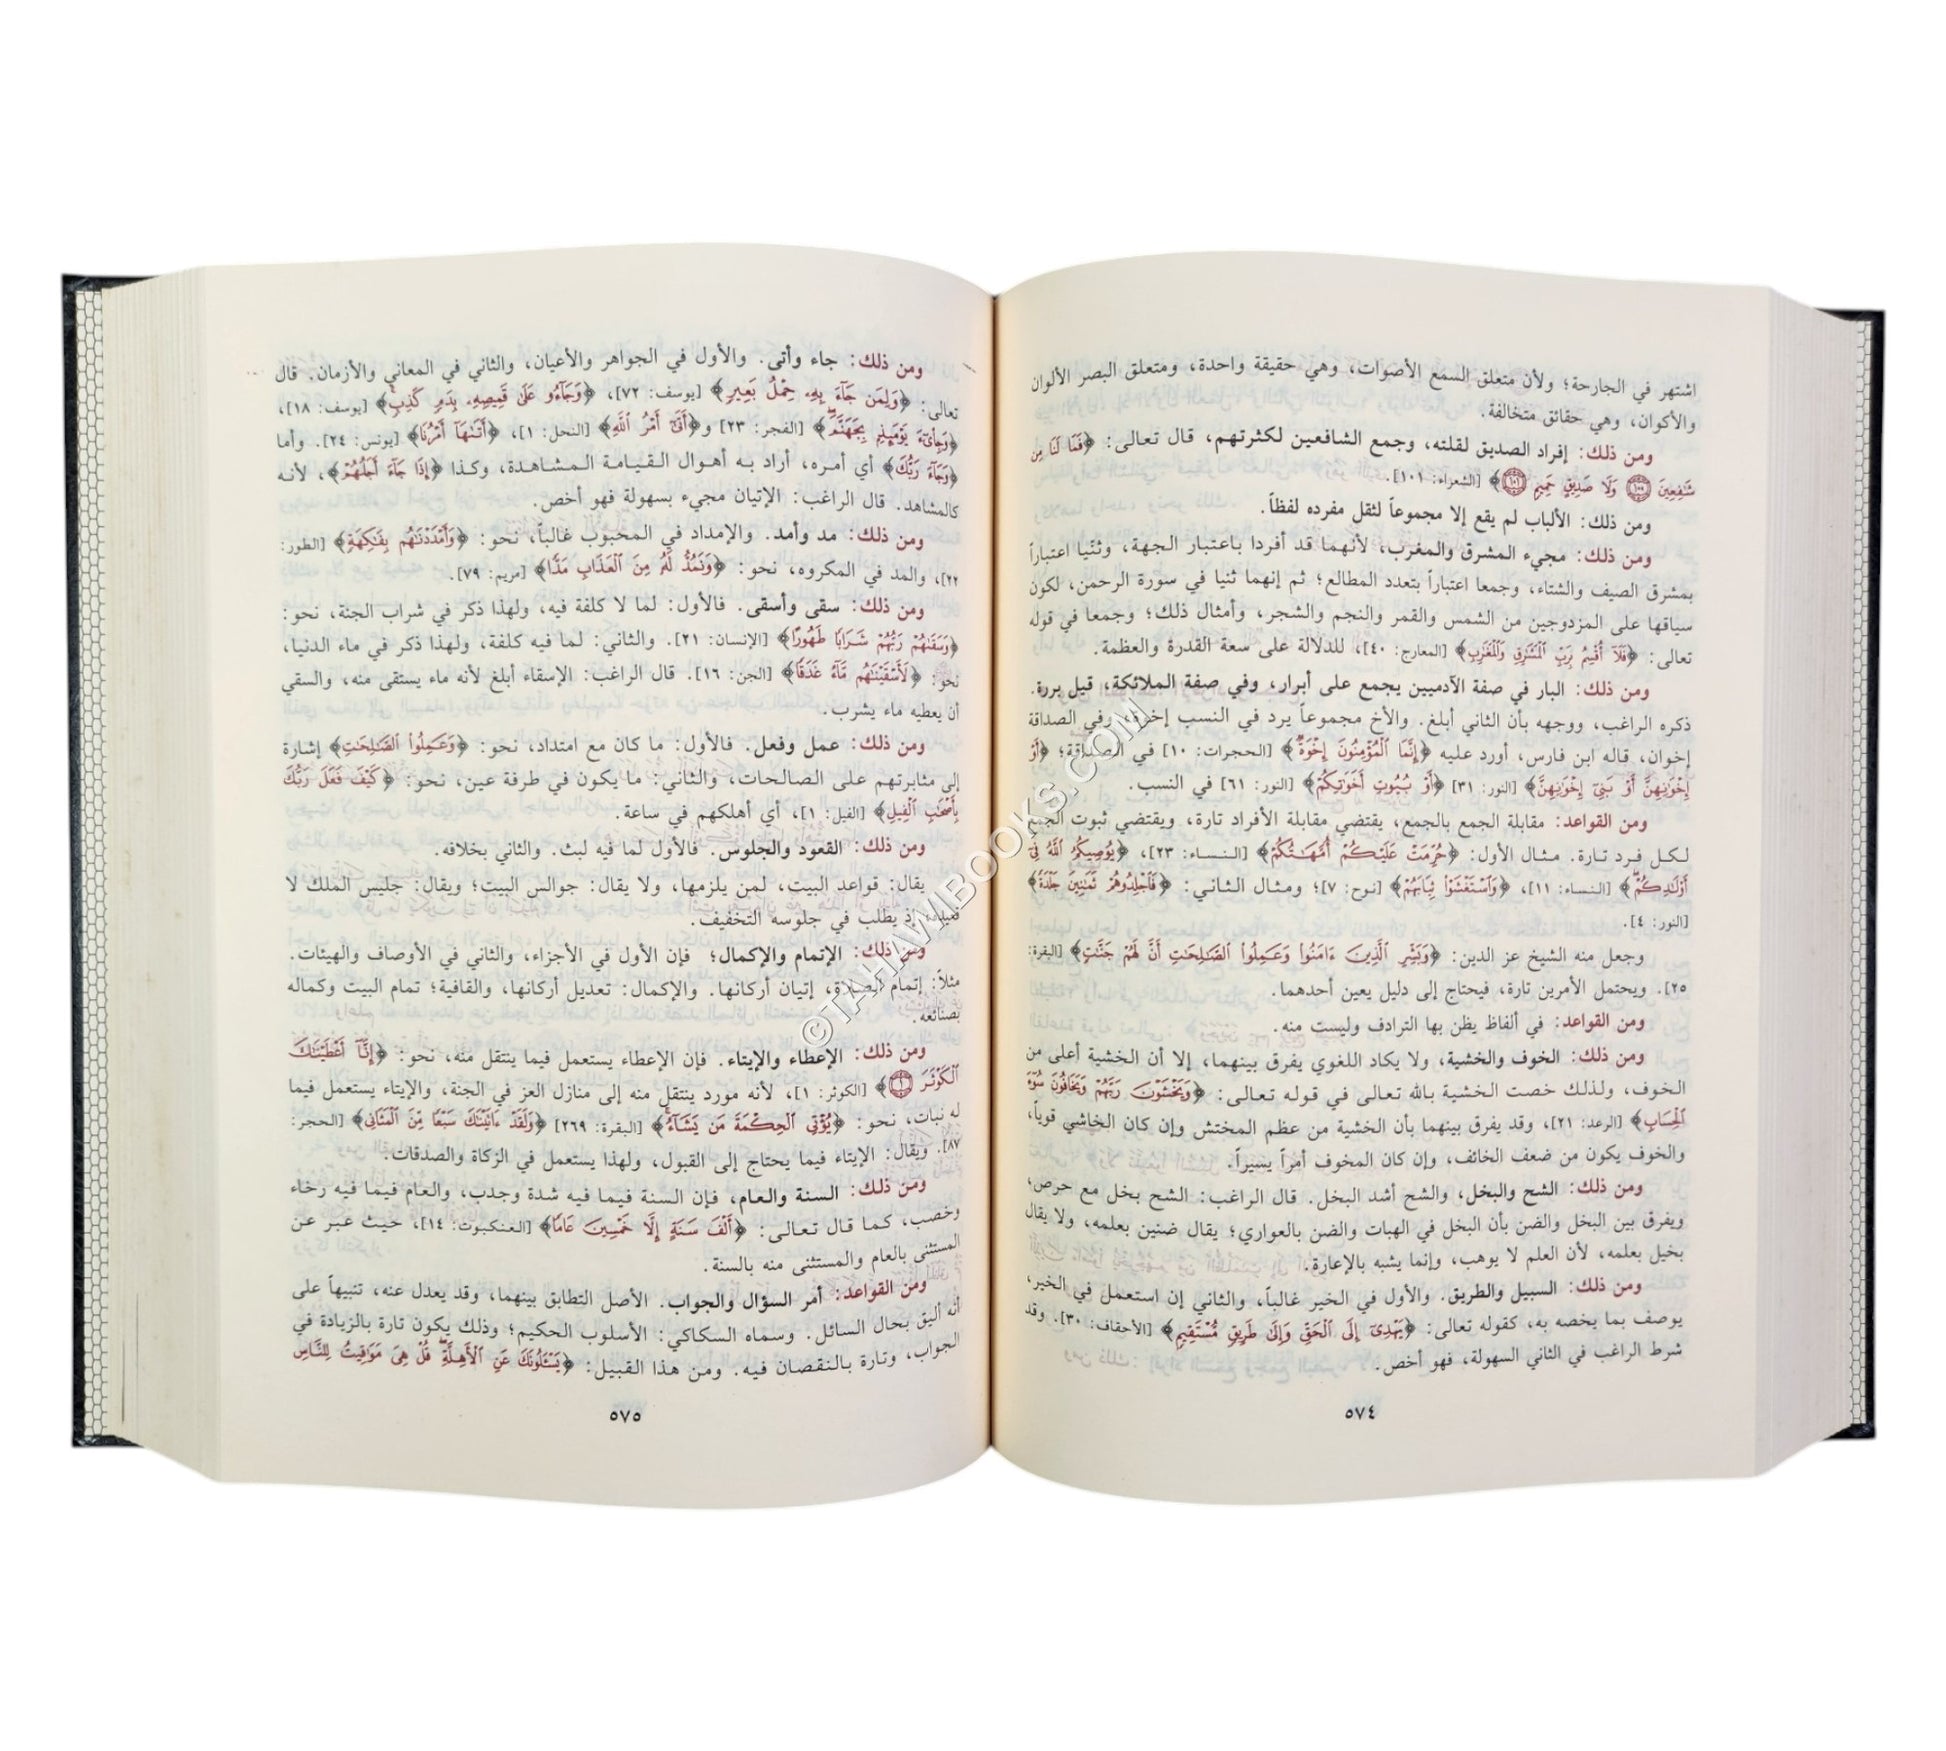 اشتهر في الجارحة؛ ولأن متعلق السمع الأصوات، وهي حقيقة واحدة، ومتعلق البصر الألوان
والأكوان، وهي حقائق متخالفة.
ومن ذلك: إفراد الصديق لقلته، وجمع الشافعين لكثرتهم، قال تعالى: ﴿فَمَا لَنَا مِن
شَٰفِعِينَ ١٠٠ وَلَا صَدِيقٍ حَمِيمٍ ١٠١﴾ [الشعراء: ١٠١].
ومن ذلك: الألباب لم يقع إلا مجموعاً لثقل مفرده لفظاً.
ومن ذلك: مجيء المشرق والمغرب، لأنهما قد أفردا باعتبار الجهة، وثنّيا اعتباراً
بمشرق الصيف والشتاء، وجمعا اعتباراً بتعدد المطالع؛ ثم إنهما ثنيا في سورة الرحمن، لكون
سياقها على المزدوجين من الشمس والقمر والنجم والشجر، وأمثال ذلك؛ وجمعا في قوله
تعالى: ﴿فَلَآ أُقْسِمُ بِرَبِّ ٱلْمَشَٰرِقِ وَٱلْمَغَٰرِبِ﴾ [المعارج: ٤٠]، للدلالة على سعة القدرة والعظمة.
ومن ذلك: البار في صفة الآدميين يجمع على أبرار، وفي صفة الملائكة، قيل بررة.
ذكره الراغب، ووجهه بأن الثاني أبلغ. والأخ مجموعاً يرد في النسب إخوة، وفي الصداقة
إخوان، قاله ابن فارس، أورد عليه ﴿إِنَّمَا ٱلْمُؤْمِنُونَ إِخْوَةٌ﴾ [الحجرات: ١٠] في الصداقة؛ ﴿أَوْ
إِخْوَٰنِهِنَّ أَوْ بَنِىٓ إِخْوَٰنِهِنَّ﴾ [النور: ٣١] ﴿أَوْ بُيُوتِ أَخَوَٰتِكُمْ﴾ [النور: ٦١] في النسب.
ومن القواعد: مقابلة الجمع بالجمع، يقتضي مقابلة الأفراد تارة، ويقتضي ثبوت الجمع
لكل فرد تارة. مثال الأول: ﴿حُرِّمَتْ عَلَيْكُمْ أُمَّهَٰتُكُمْ﴾ [النساء: ٢٣]، ﴿يُوصِيكُمُ ٱللَّهُ فِىٓ
أَوْلَٰدِكُمْ﴾ [النساء: ١١]، ﴿وَٱسْتَغْشَوْا۟ ثِيَابَهُمْ﴾ [نوح: ٧]؛ ومثال الثاني: ﴿فَٱجْلِدُوهُمْ ثَمَٰنِينَ جَلْدَةً﴾
[النور: ٤].
وجعل منه الشيخ عز الدين: ﴿وَبَشِّرِ ٱلَّذِينَ ءَامَنُوا۟ وَعَمِلُوا۟ ٱلصَّٰلِحَٰتِ أَنَّ لَهُمْ جَنَّٰتٍ﴾ [البقرة:
٢٥]. ويحتمل الأمرين تارة، فيحتاج إلى دليل يعين أحدهما.
ومن القواعد: في ألفاظ يظن بها الترادف وليست منه.
ومن ذلك: الخوف والخشية، ولا يكاد اللغوي يفرق بينهما، إلا أن الخشية أعلى من
الخوف، ولذلك خصت الخشية بالله تعالى في قوله تعالى: ﴿وَيَخْشَوْنَ رَبَّهُمْ وَيَخَافُونَ سُوٓءَ
ٱلْحِسَابِ﴾ [الرعد: ٢١]، وقد يفرق بينهما بأن الخشية من عظم المختش وإن كان الخاشي قوياً،
والخوف يكون من ضعف الخائف، وإن كان المخوف أمراً يسيراً.
ومن ذلك: الشح والبخل، والشح أشد البخل. قال الراغب: الشح بخل مع حرص،
ويفرق بين البخل والضن بأن البخل في الهبات والضن بالعواري؛ يقال ضنين بعلمه، ولا يقال
بخيل بعلمه، لأن العلم لا يوهب، وإنما يشبه بالإعارة.
ومن ذلك: السبيل والطريق. والأول في الخير غالباً، والثاني إن استعمل في الخير،
يوصف بما يخصه به، كقوله تعالى: ﴿يَهْدِىٓ إِلَى ٱلْحَقِّ وَإِلَىٰ طَرِيقٍ مُّسْتَقِيمٍ﴾ [الأحقاف: ٣٠]. وقد
شرط الراغب في الثاني السهولة، فهو أخص.
٥٧٤
ومن ذلك: جاء وأتى. والأول في الجواهر والأعيان، والثاني في المعاني والأزمان. قال
تعالى: ﴿وَلِمَن جَآءَ بِهِۦ حِمْلُ بَعِيرٍ﴾ [يوسف: ٧٢]، ﴿وَجَآءُو عَلَىٰ قَمِيصِهِۦ بِدَمٍ كَذِبٍ﴾ [يوسف: ١٨]،
﴿وَجِا۟ىٓءَ يَوْمَئِذٍۭ بِجَهَنَّمَ﴾ [الفجر: ٢٣] و﴿أَتَىٰٓ أَمْرُ ٱللَّهِ﴾ [النحل: ١]، ﴿أَتَىٰهَآ أَمْرُنَا﴾ [يونس: ٢٤]. وأما
﴿وَجَآءَ رَبُّكَ﴾ أي أمره، أراد به أهوال القيامة المشاهدة، وكذا ﴿إِذَا جَآءَ أَجَلُهُمْ﴾، لأنه
كالمشاهد. قال الراغب: الإتيان مجيء بسهولة فهو أخص.
ومن ذلك: مد وأمد. والإمداد في المحبوب غالباً، نحو: ﴿وَأَمْدَدْنَٰهُم بِفَٰكِهَةٍ﴾ [الطور:
٢٢]، والمد في المكروه، نحو: ﴿وَنَمُدُّ لَهُۥ مِنَ ٱلْعَذَابِ مَدًّا﴾ [مريم: ٧٩].
ومن ذلك: سقى وأسقى. فالأول: لما لا كلفة فيه، ولهذا ذكر في شراب الجنة، نحو:
﴿وَسَقَىٰهُمْ رَبُّهُمْ شَرَابًا طَهُورًا﴾ [الإنسان: ٢١]. والثاني: لما فيه كلفة، ولهذا ذكر في ماء الدنيا،
نحو: ﴿لَأَسْقَيْنَٰهُم مَّآءً غَدَقًا﴾ [الجن: ١٦]. قال الراغب: الإسقاء أبلغ لأنه ماء يستقى منه، والسقي
أن يعطيه ماء يشرب.
ومن ذلك: عمل وفعل. فالأول: ما كان مع امتداد، نحو: ﴿وَعَمِلُوا۟ ٱلصَّٰلِحَٰتِ﴾ إشارة
إلى مثابرتهم على الصالحات، والثاني: ما يكون في طرفة عين، نحو: ﴿كَيْفَ فَعَلَ رَبُّكَ
بِأَصْحَٰبِ ٱلْفِيلِ﴾ [الفيل: ١]، أي أهلكهم في ساعة.
ومن ذلك: القعود والجلوس. فالأول لما فيه لبث. والثاني بخلافه.
يقال: قواعد البيت، لمن يلزمها، ولا يقال: جوالس البيت؛ ويقال: جليس الملك لا
قعيده، إذ يطلب في جلوسه التخفيف.
ومن ذلك: الإتمام والإكمال؛ فإن الأول في الأجزاء، والثاني في الأوصاف والهيئات.
مثلاً: إتمام الصلاة، إتيان أركانها. والإكمال: تعديل أركانها، والقافية؛ تمام البيت وكماله
بصنائعه.
ومن ذلك: الإعطاء والإيتاء. فإن الإعطاء يستعمل فيما ينتقل منه، نحو: ﴿إِنَّآ أَعْطَيْنَٰكَ
ٱلْكَوْثَرَ ١﴾ [الكوثر: ١]، لأنه مورد ينتقل منه إلى منازل العز في الجنة، والإيتاء يستعمل فيما
له نبات، نحو: ﴿يُؤْتِى ٱلْحِكْمَةَ مَن يَشَآءُ﴾ [البقرة: ٢٦٩] ﴿وَلَقَدْ ءَاتَيْنَٰكَ سَبْعًا مِّنَ ٱلْمَثَانِى﴾ [الحجر:
٨٧]. ويقال: الإيتاء فيما يحتاج إلى القبول، ولهذا يستعمل في الزكاة والصدقات.
ومن ذلك: السنة والعام، فإن السنة فيما فيه شدة وجدب، والعام فيما فيه رخاء
وخصب، كما قال تعالى: ﴿أَلْفَ سَنَةٍ إِلَّا خَمْسِينَ عَامًا﴾ [العنكبوت: ١٤]، حيث عبر عن
المستثنى بالعام والمستثنى منه بالسنة.
ومن القواعد: أمر السؤال والجواب. الأصل التطابق بينهما، وقد يعدل عنه، تنبيهاً على
أنه أليق بحال السائل. وسماه السكاكي: الأسلوب الحكيم؛ وذلك يكون تارة بالزيادة في
الجواب، وتارة بالنقصان فيه. ومن هذا القبيل: ﴿يَسْـَٔلُونَكَ عَنِ ٱلْأَهِلَّةِ قُلْ هِىَ مَوَٰقِيتُ لِلنَّاسِ
٥٧٥
©TAHAWIBOOKS.COM